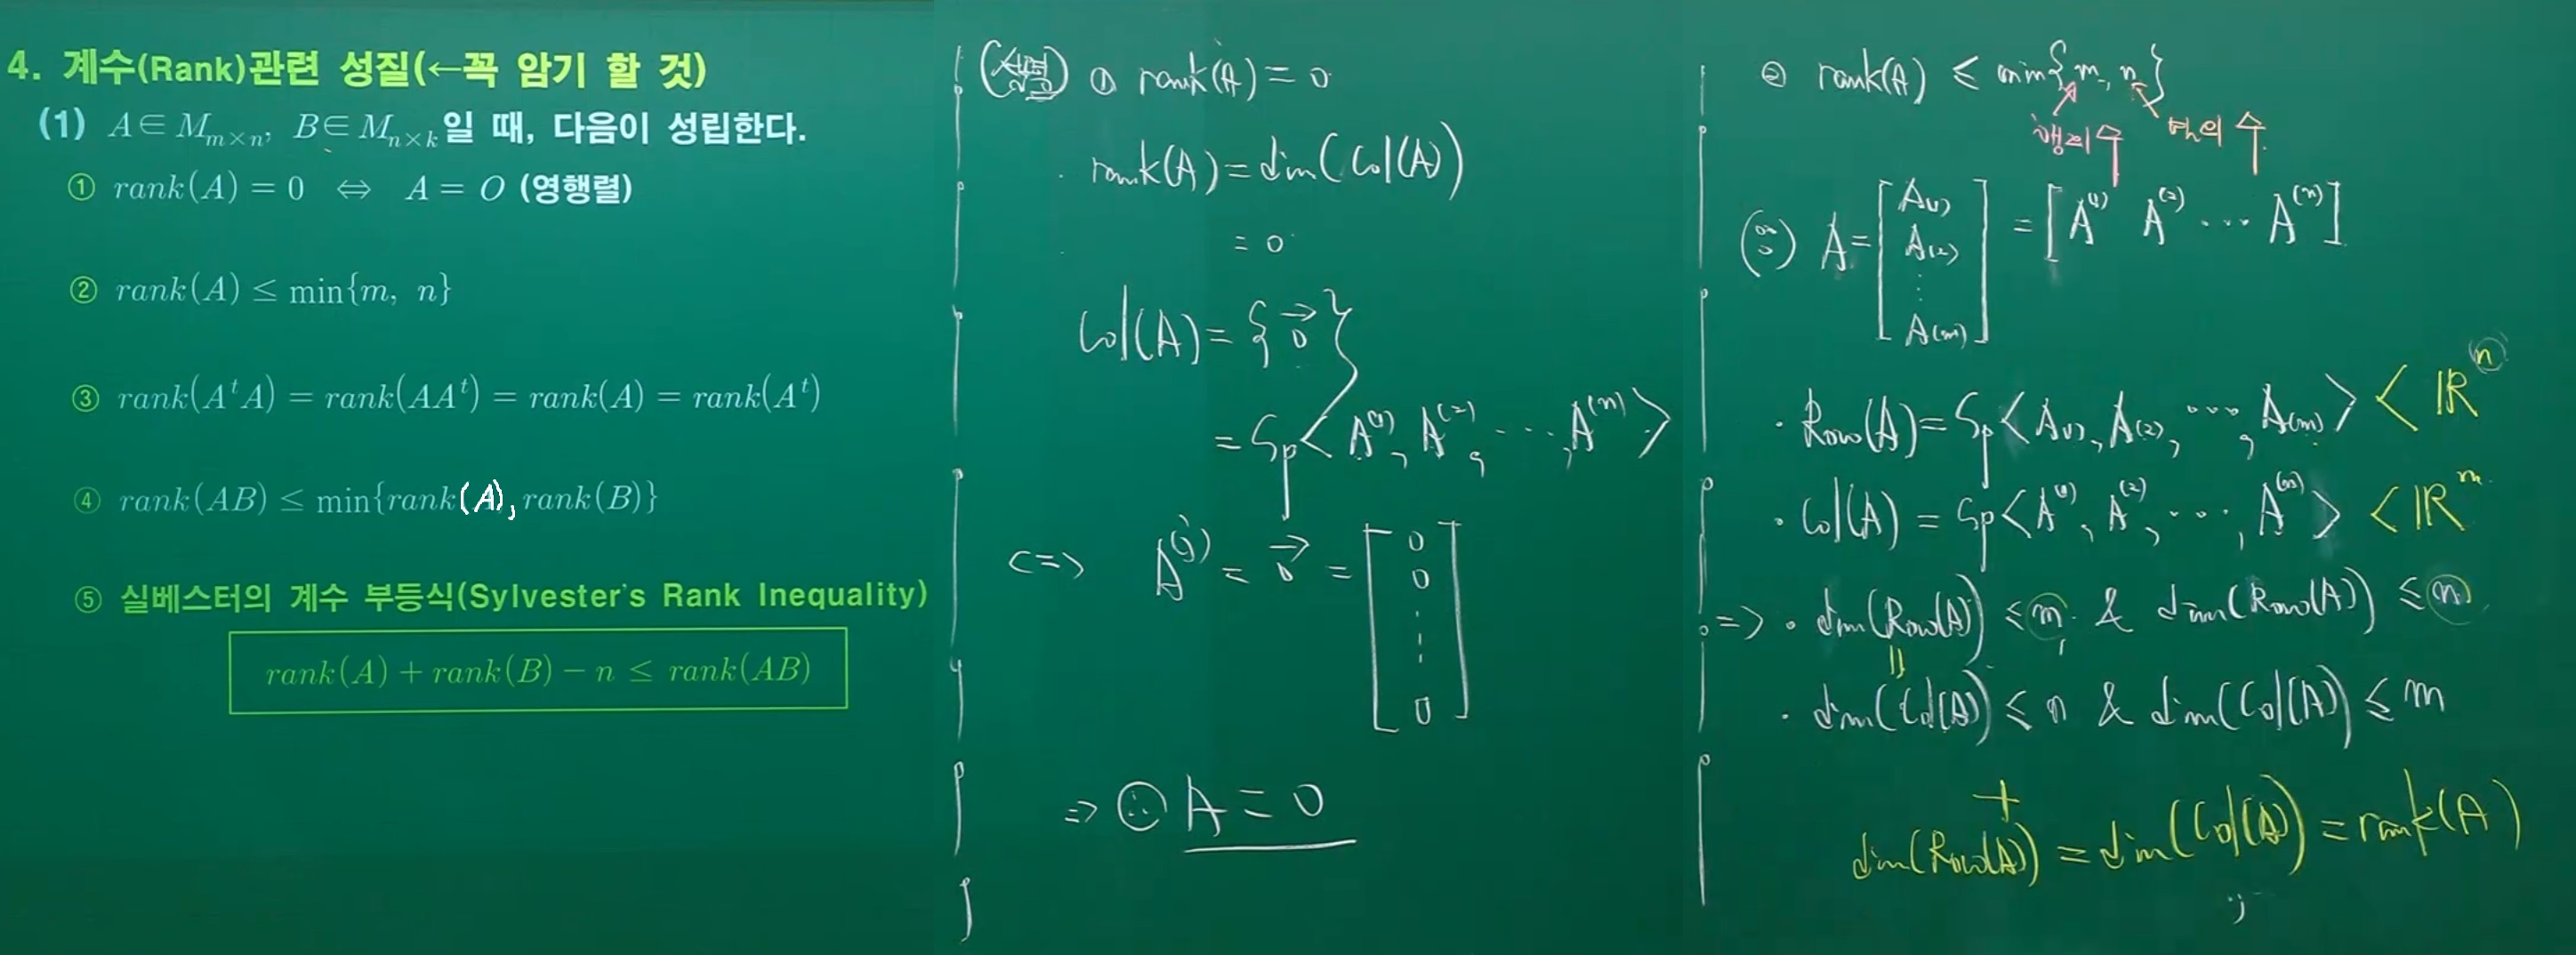 4. 계수(Rank)관련 성질(←꼭 암기 할 것)
(1) A∈M_{m×n}, B∈M_{n×k}일 때, 다음이 성립한다.
① rank(A) = 0 ⇔ A = O (영행렬)
② rank(A) ≤ min{m, n}
③ rank(AᵗA) = rank(AAᵗ) = rank(A) = rank(Aᵗ)
④ rank(AB) ≤ min{rank(A), rank(B)}
⑤ 실베스터의 계수 부등식(Sylvester's Rank Inequality)
rank(A) + rank(B) − n ≤ rank(AB)
(설명) ① rank(A) = 0
· rank(A) = dim(Col(A))
= 0
Col(A) = {0⃗}
= Sp<A⁽¹⁾, A⁽²⁾, ···, A⁽ⁿ⁾>
<=> A⁽ʲ⁾ = 0⃗ = [0 0 ⋮ 0]
=> ∴ A = 0
② rank(A) ≤ min{m, n}
행의 수 열의 수
(∵) A = [A₍₁₎ A₍₂₎ ⋮ A₍ₘ₎] = [A⁽¹⁾ A⁽²⁾ ··· A⁽ⁿ⁾]
· Row(A) = Sp<A₍₁₎, A₍₂₎, ···, A₍ₘ₎> < ℝⁿ
· Col(A) = Sp<A⁽¹⁾, A⁽²⁾, ···, A⁽ⁿ⁾> < ℝᵐ
=> · dim(Row(A)) ≤ m, & dim(Row(A)) ≤ n
||
· dim(Col(A)) ≤ n & dim(Col(A)) ≤ m
+
dim(Row(A)) = dim(Col(A)) = rank(A)